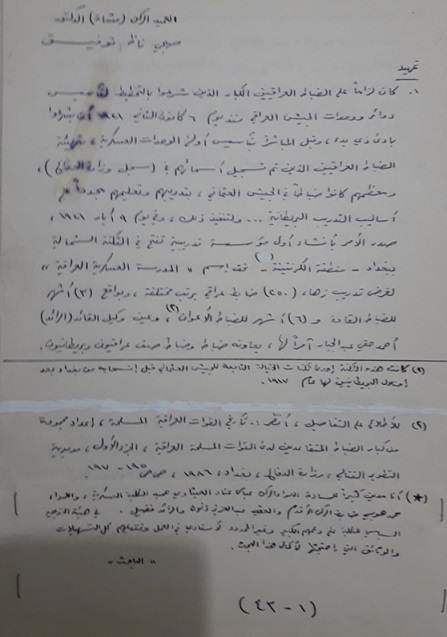 العميد الركن (متقاعد) الدكتور
صبحي ناظم توفيق
تمهيد
١. كان لزاماً على الضباط العراقيين الكبار الذين شرعوا بالتخطيط لتأسيس
دوائر ووحدات الجيش العراقي منذ يوم ٦ كانون الثاني ١٩٢١ أن
بادئ ذي بدء، وقبل المباشرة بتأسيس أولى الوحدات العسكرية، تهيئة
الضباط العراقيين الذين تم تسجيل أسمائهم في (سجل وزارة الدفاع)،
ومعظمهم كانوا ضباطاً في الجيش العثماني، بتدريبهم وتعليمهم مجدداً على
أساليب التدريب البريطانية ... ولتنفيذ ذلك، وفي يوم ٩ أيار ١٩٢١،
صدر الأمر بإنشاء أول مؤسسة تدريبية تفتح في الثكنة الشمالية
ببغداد - منطقة الكرنتينة - تحت إسم "المدرسة العسكرية العراقية"
لغرض تدريب زهاء (٢٥٠) ضابط عراقي برتب مختلفة، وبواقع (٣) أشهر
للضباط القادة و (٦) أشهر للضباط الأعوان (٢)، وعين وكيل القائد (الرائد)
أحمد حقي عبدالجبار آمراً لها، يعاونه ضباط وضباط صف عراقيون وبريطانيون.
كانت هذه الثكنة إحدى ثكنات الخيالة التابعة للجيش العثماني قبل إنسحابه من بغداد بعد
البريطانيين لها عام ١٩١٧.
(٢) للإطلاع على التفاصيل، أنظر:- تأريخ القوات العراقية المسلحة، إعداد مجموعة
من كبار الضباط المتقاعدين لدى القوات المسلحة العراقية، الجزء الأول، مديرية
التطوير القتالي، وزارة الدفاع، بغداد، ١٩٨٦، ص ص ١٩٥ - ١٩٧.
(*)
السياسي
والوثائق التي إحتجتها لإكمال هذا البحث.
"الباحث"
(١ - ٤٣)